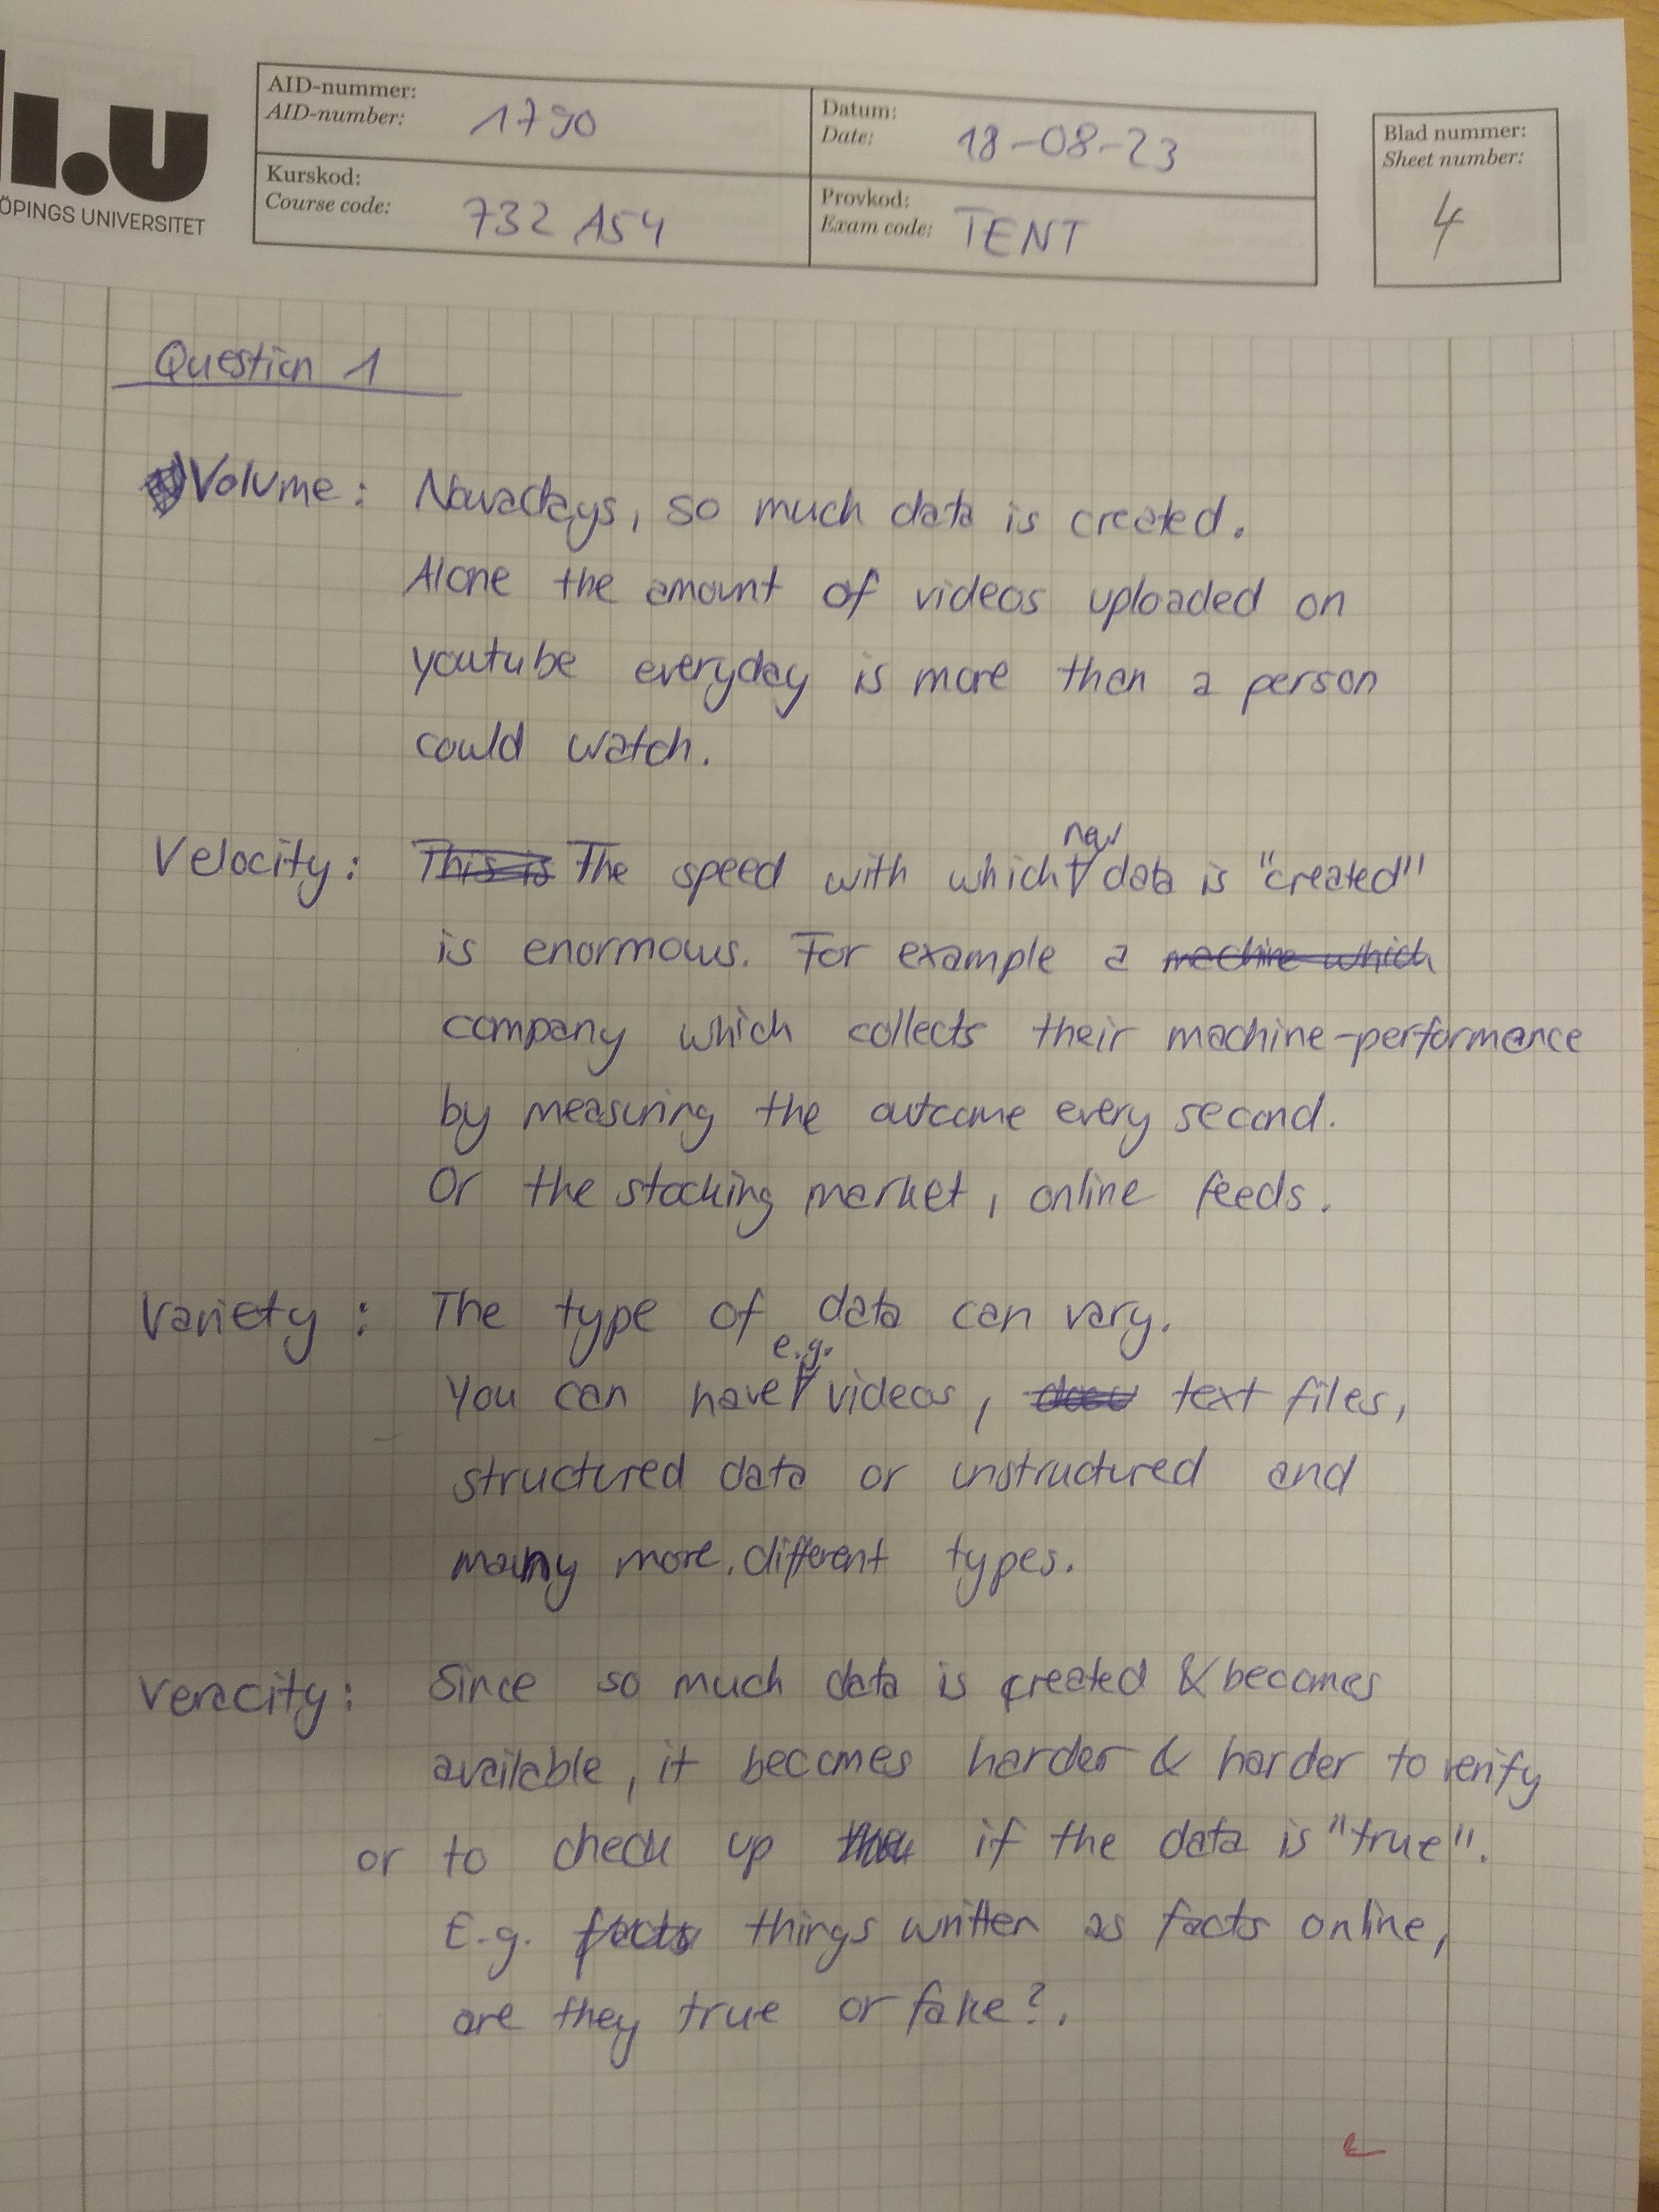 li.u
ÖPINGS UNIVERSITET
AID-nummer:
AID-number: 1790
Datum:
Date: 18-08-23
Kurskod:
Course code: 732 A54
Provkod:
Exam code: TENT
Blad nummer:
Sheet number:
4
Question 1
Volume: Nowadays, so much data is created.
Alone the amount of videos uploaded on
youtube everyday is more than a person
could watch.
Velocity: This is The speed with which new data is "created"
is enormous. For example a machine which
company which collects their machine-performance
by measuring the outcome every second.
Or the stocking market, online feeds.
Variety: The type of data can vary.
You can have e.g. videos, text files,
structured data or unstructured and
many more. different types.
Veracity: Since so much data is created & becomes
available, it becomes harder & harder to verify
or to check up if the data is "true".
E.g. facts things written as facts online,
are they true or fake?.